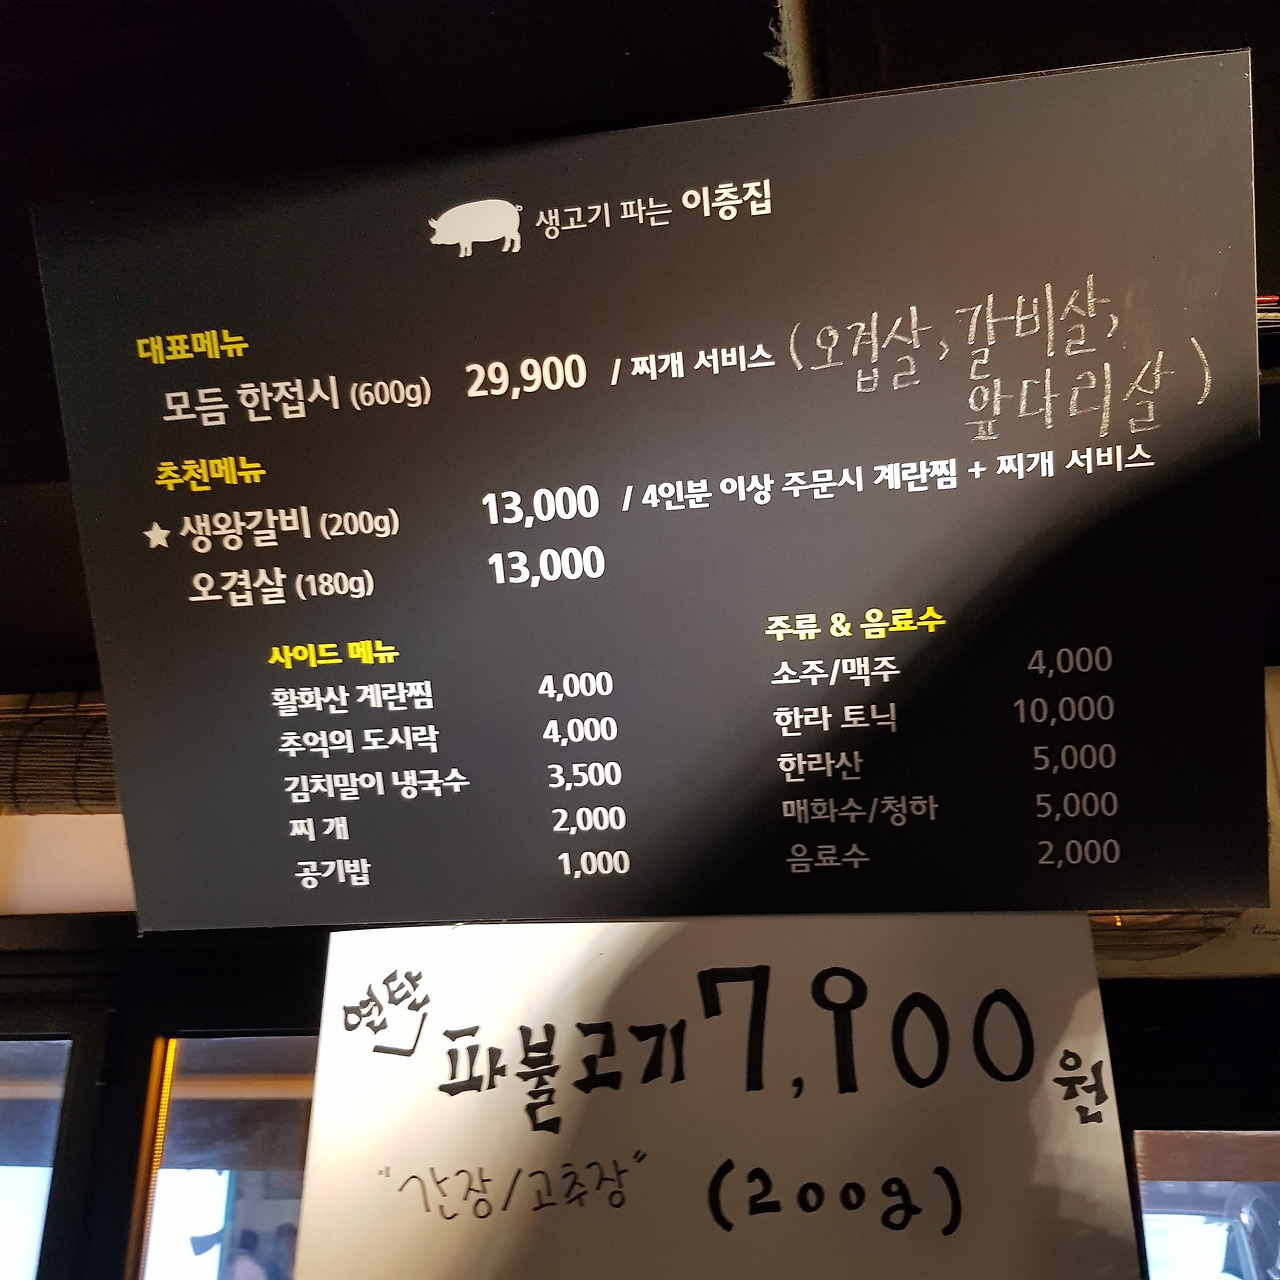 생고기 파는 이층집
대표메뉴
모듬 한접시 (600g) 29,900 / 찌개 서비스 (오겹살, 갈비살,
앞다리살)
추천메뉴
★ 생왕갈비 (200g) 13,000 / 4인분 이상 주문시 계란찜 + 찌개 서비스
오겹살 (180g) 13,000
사이드 메뉴
활화산 계란찜 4,000
추억의 도시락 4,000
김치말이 냉국수 3,500
찌 개 2,000
공기밥 1,000
주류 & 음료수
소주/맥주 4,000
한라 토닉 10,000
한라산 5,000
매화수/청하 5,000
음료수 2,000
연탄
파불고기 7,900원
"간장/고추장" (200g)